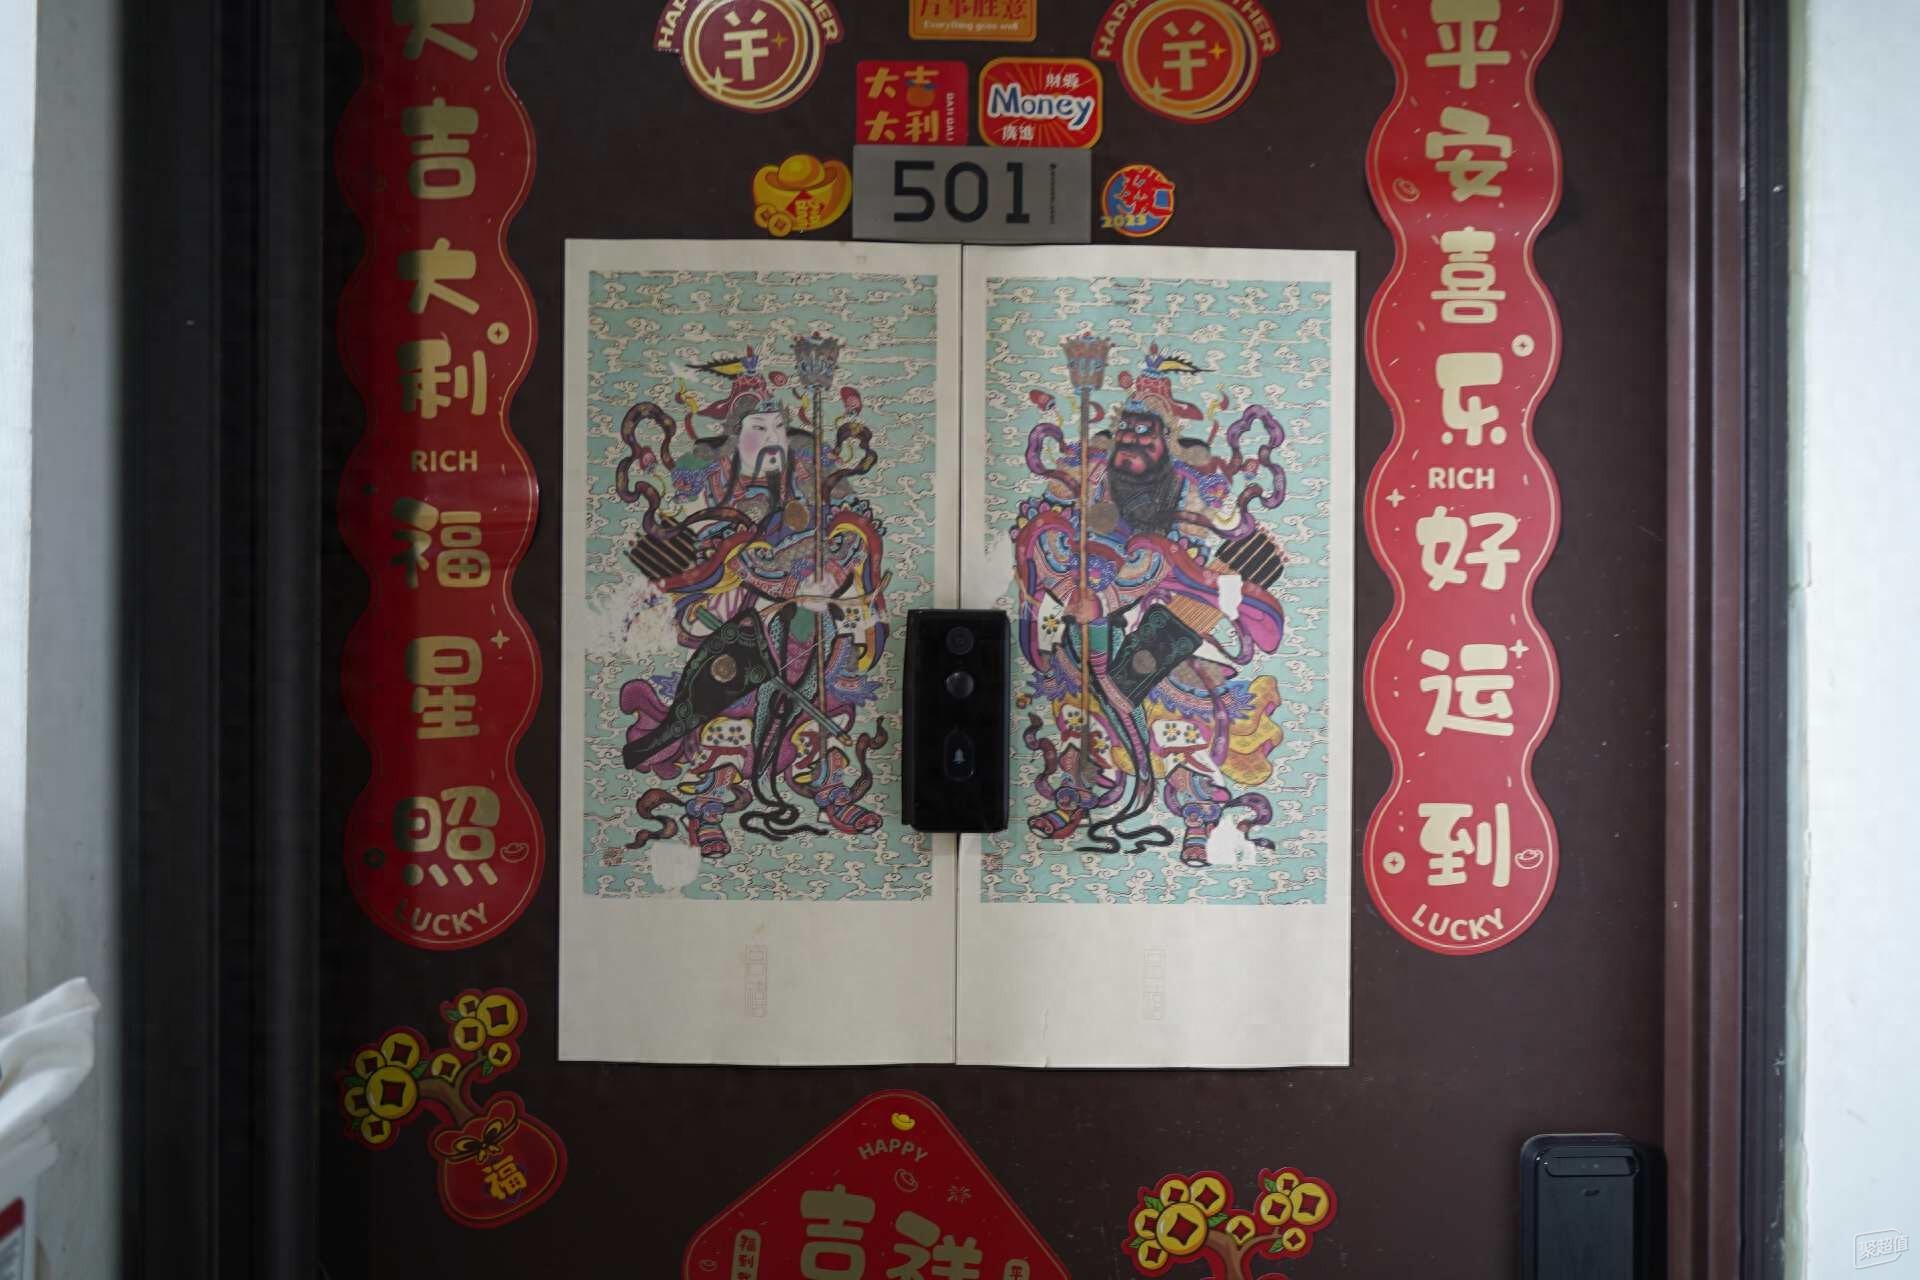 大吉大利
RICH
福星照
LUCKY
HAPP
THER
羊
万事胜意
Everything goes well
HAPP
THER
羊
大吉
大利
DAJI DALI
财源
Money
廣進
501
2023
平安喜乐
RICH
好运到
LUCKY
福
HAPPY
吉祥
福到
平
聚超值